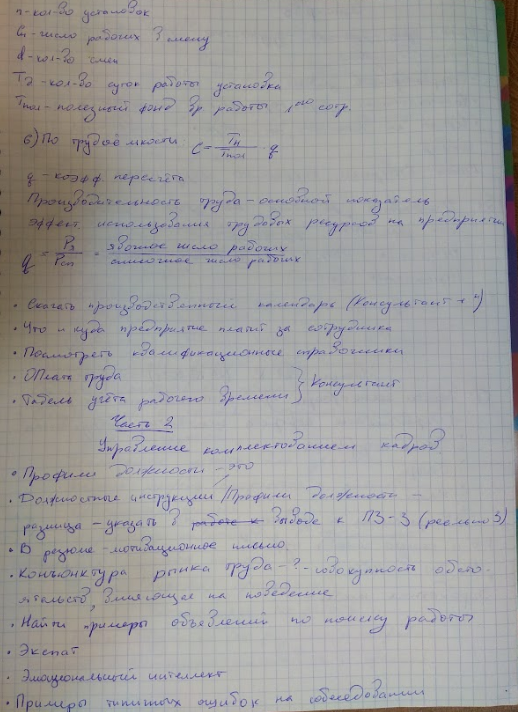 n-кол-во установок
Cп-число рабочих в смену
d-кол-во смен
Tд-кол-во суток работы установка
Tпол-полезный фонд вр. работы 1ого сотр.
б) По трудоёмкости C = Tн / Tпол · q
q-коэфф. пересчёта
Производительность труда-основной показатель
эффект. использования трудовых ресурсов на предприятии
q = Pя / Pсп = явочное число рабочих / списочное число рабочих
• Скачать производственный календарь (Консультант +")
• Что и куда предприятие платит за сотрудника
• Посмотреть квалификационные справочники
• ОПлать труда
• Табель учёта рабочего времени } Консультант
Часть 2
Управление комплектованием кадров
• Профили должности - это
• Должностные инструкции / Профили должности -
разница - указать в работе к выводе к ПЗ-3 (реально 3)
• В резюме - мотивационное письмо.
• Конъюнктура рынка труда - ? - совокупность обсто-
ятельств, влияющие на поведение
• Найти примеры объявлений по поиску работы
• Экспат
• Эмоциональный интеллект
• Примеры типичных ошибок на собеседовании